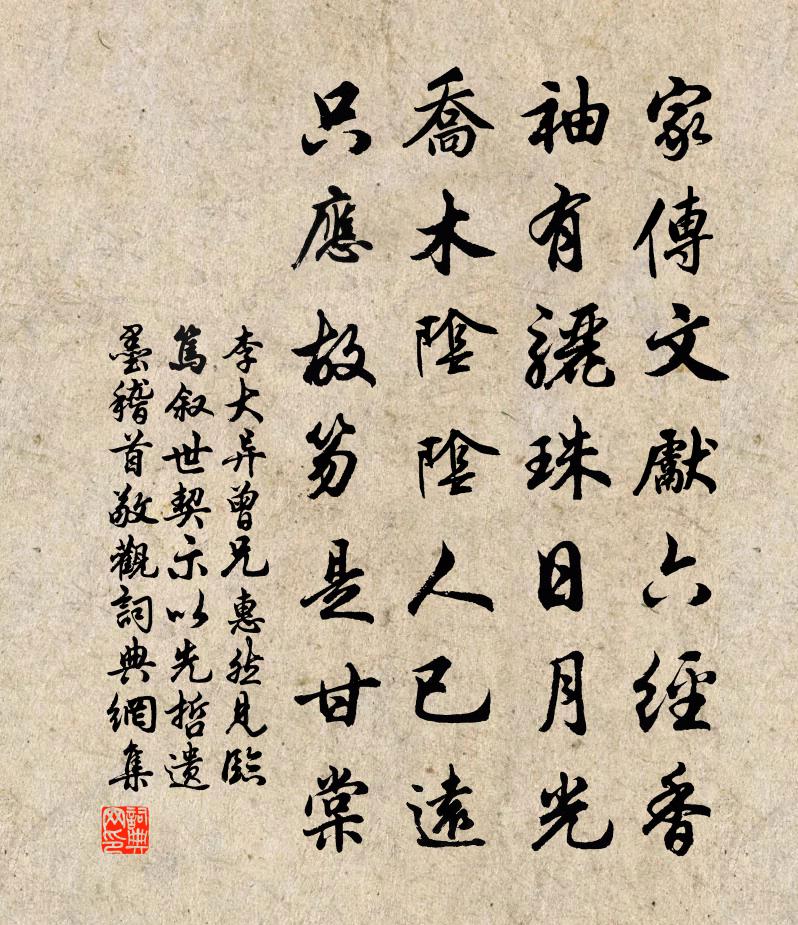 家傳文獻六經香
袖有驪珠日月光
喬木陰陰人已遠
只應故笏是甘棠
李大异曾兄惠然見臨
篤叙世契示以先哲遺
墨稽首敬觀詞典網集
詞典网印